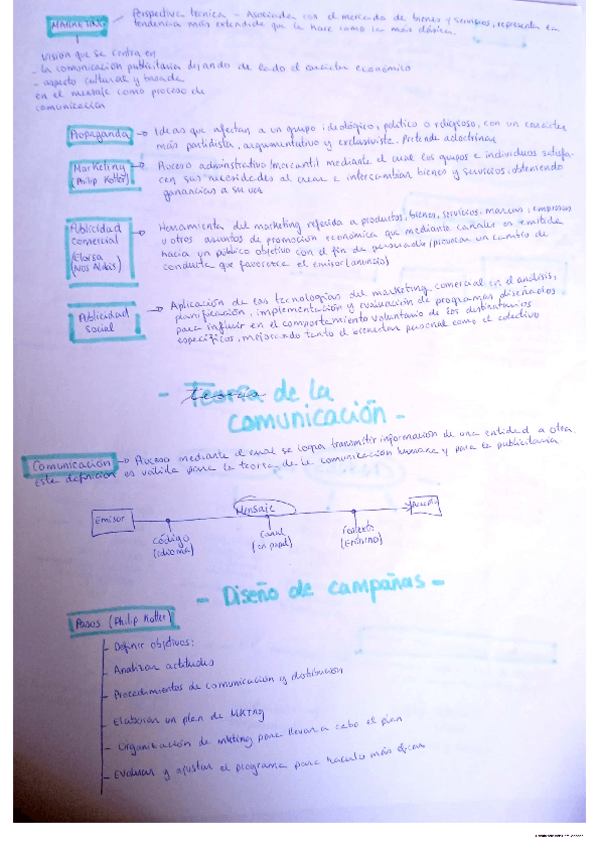 MARKETING
Perspectiva técnica - Asociada con el mercado de bienes y servicios, representa la
tendencia más extendida que la hace como la más clásica.
Visión que se centra en
- la comunicación publicitaria dejando de lado el carácter económico
- aspecto cultural y basada
en el mensaje como proceso de
comunicación
Propaganda → Ideas que afectan a un grupo ideológico, político o religioso, con un carácter
más partidista, argumentativo y exclusivista. Pretende adoctrinar
Marketing
(Philip Kotler)
→ Proceso administrativo/mercantil mediante el cual los grupos e individuos satisfa-
cen sus necesidades al crear e intercambiar bienes y servicios, obteniendo
ganancias a su vez
Publicidad
comercial
(Eloísa
Nos Aldás)
→ Herramienta del marketing referida a productos, bienes, servicios, marcas, empresas
u otros asuntos de promoción económica que mediante canales es emitida
hacia un público objetivo con el fin de persuadir/provocar un cambio de
conducta que favorezca el emisor (anuncio)
Publicidad
social
→ Aplicación de las tecnologías del marketing comercial en el análisis,
planificación, implementación y evaluación de programas diseñados
para influir en el comportamiento voluntario de los destinatarios
específicos, mejorando tanto el bienestar personal como el colectivo
- Teoría de la
comunicación -
Comunicación → Proceso mediante el cual se logra transmitir información de una entidad a otra.
Esta definición es válida para la teoría de la comunicación humana y para la publicitaria.
Emisor
Mensaje
Receptor
código
(idioma)
canal
(en papel)
contexto
(Entorno)
- Diseño de campañas -
Pasos (Philip Kotler)
- Definir objetivos:
- Analizar actitudes
- Procedimientos de comunicación y distribución
- Elaborar un plan de MKTNG
- Organización de mkting para llevar a cabo el plan
- Evaluar y ajustar el programa para hacerlo más eficaz